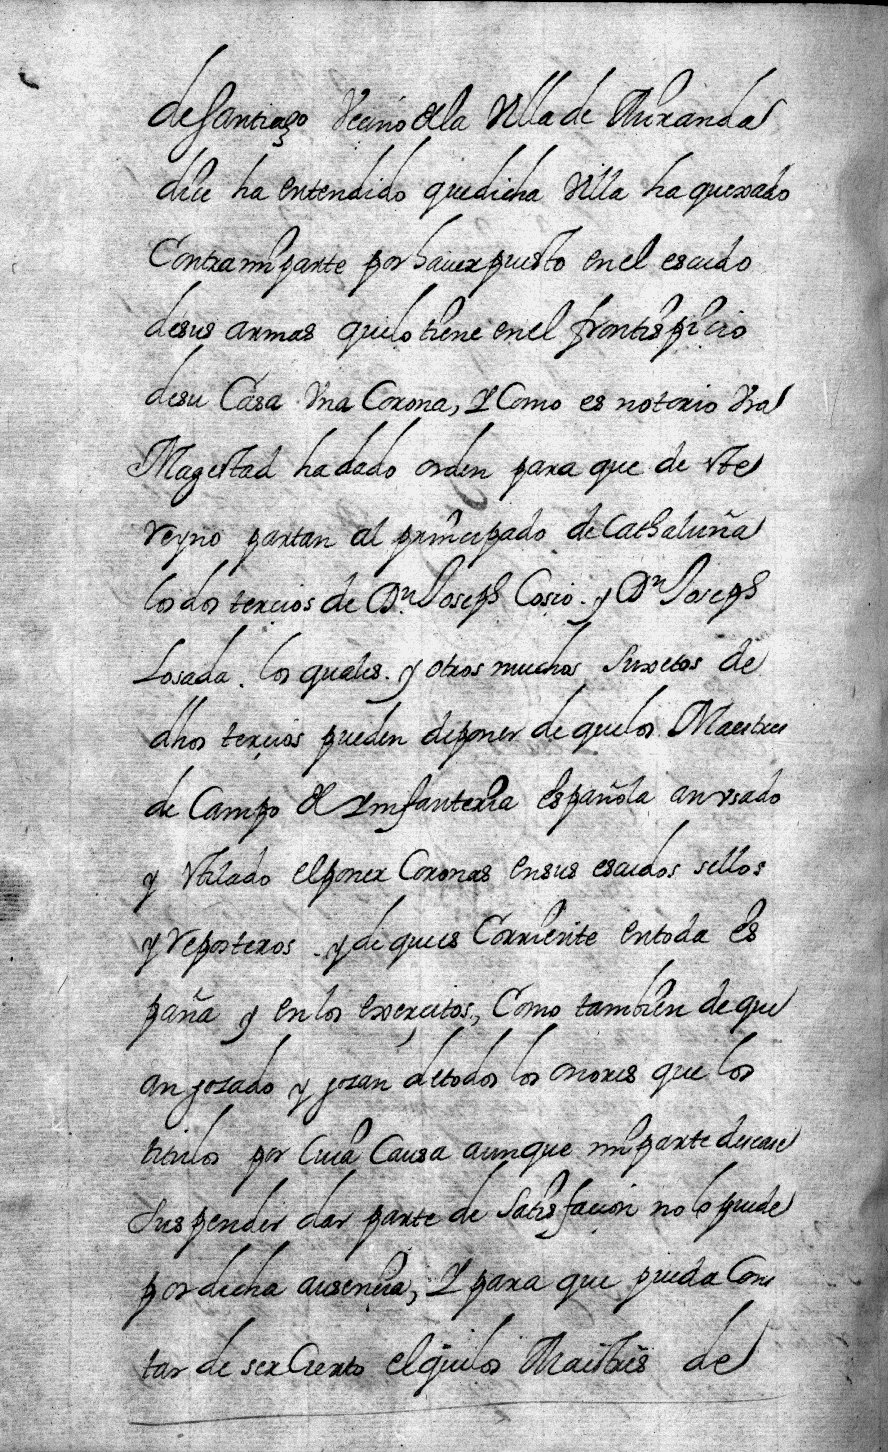 de santiago veçino de la Villa de Miranda
diçe ha entendido que dicha Villa ha quexado
Contra mi parte por haver puesto en el escudo
de sus armas que lo tiene en el frontispiçio
de su Casa Vna Corona, Y Como es notorio Vra
Magestad ha dado orden para que de este
reyno partan al prinçipado de Cathaluña
los dos terçios de Dn Joseph Cosio. y Dn Joseph
Losada. los quales. y otros muchos suxetos de
dhos terçios pueden deponer de que los Maestres
de Campo de Ynfanteria española an vsado
y Vtilado el poner Coronas en sus escudos sellos
y reposteros. y de que es Corriente en toda es
paña y en los exerçitos, Como tambien de que
an gozado y gozan de todos los onores que los
titulos por Cuia Causa aunque mi parte desease
suspender dar parte de satisfaçion no lo puede
por dicha ausençia, Y para que pueda Cons
tar de ser Cierto el q̃ los Maestres de